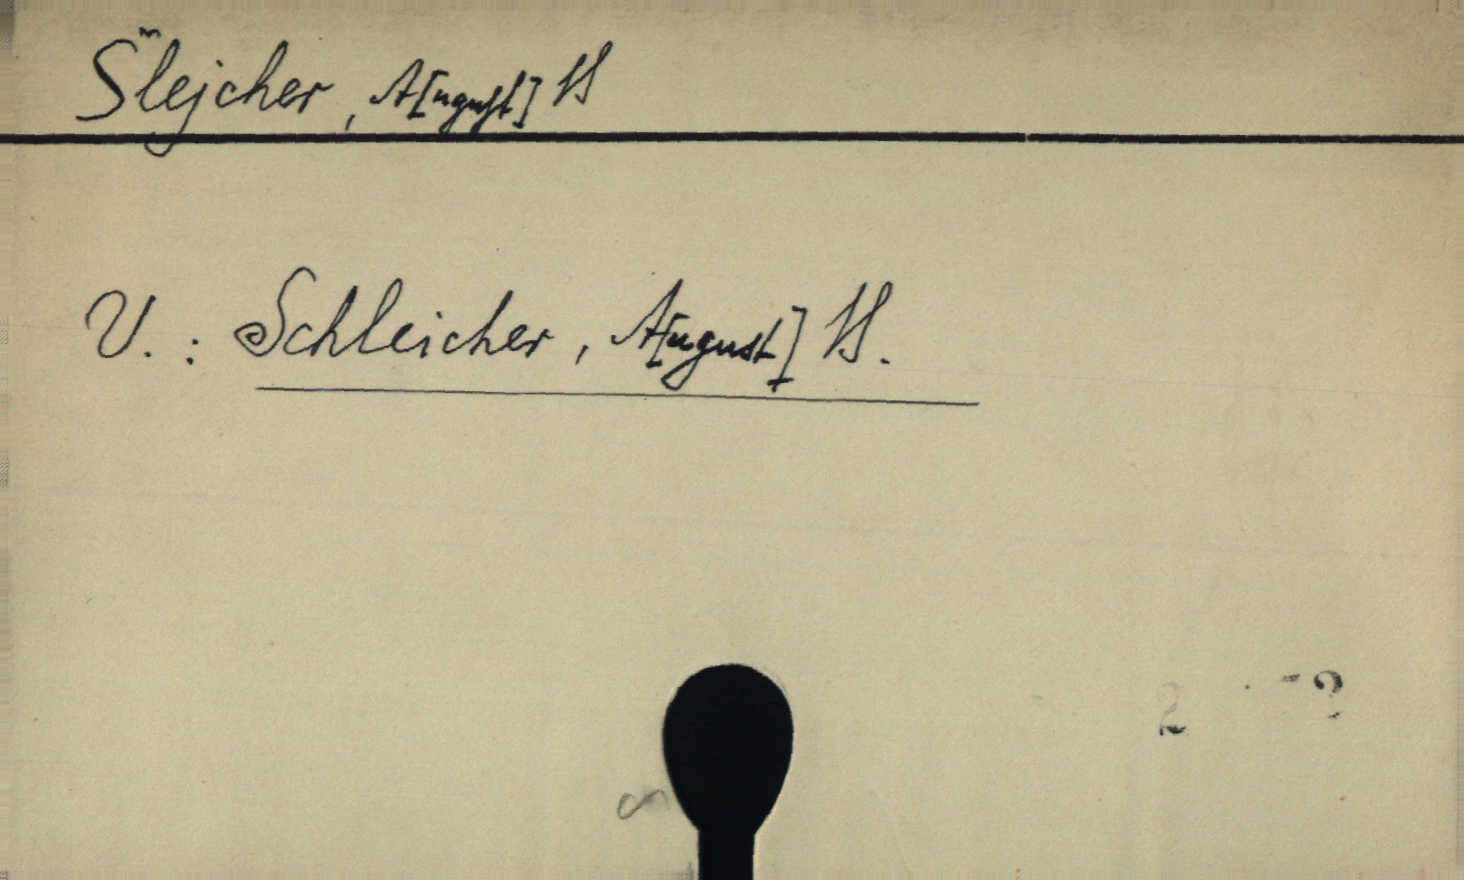 Šlejcher, A[ugust] H
V.: Schleicher, A[ugust] H.